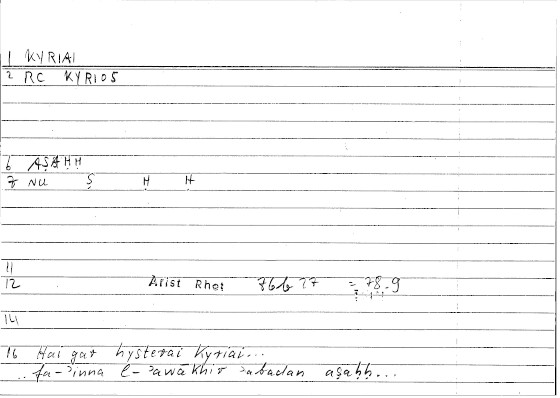 1 KYRIAI
2 RC KYRIOS
6 AṢAḤḤ
7 NU Ṣ Ḥ Ḥ
11
12 Arist Rhet 76b27 = 78.9
14
16 Hai gar hysterai Kyriai...
.. fa-ʾinna l-ʾawākhir ʾabadan aṣaḥḥ...